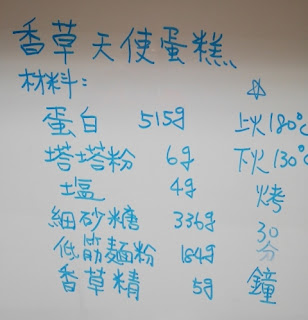 香草天使蛋糕
材料:
蛋白 515g
塔塔粉 6g
塩 4g
細砂糖 336g
低筋麵粉 184g
香草精 5g
☆
上火180°c
下火130°c
烤
30
分
鐘